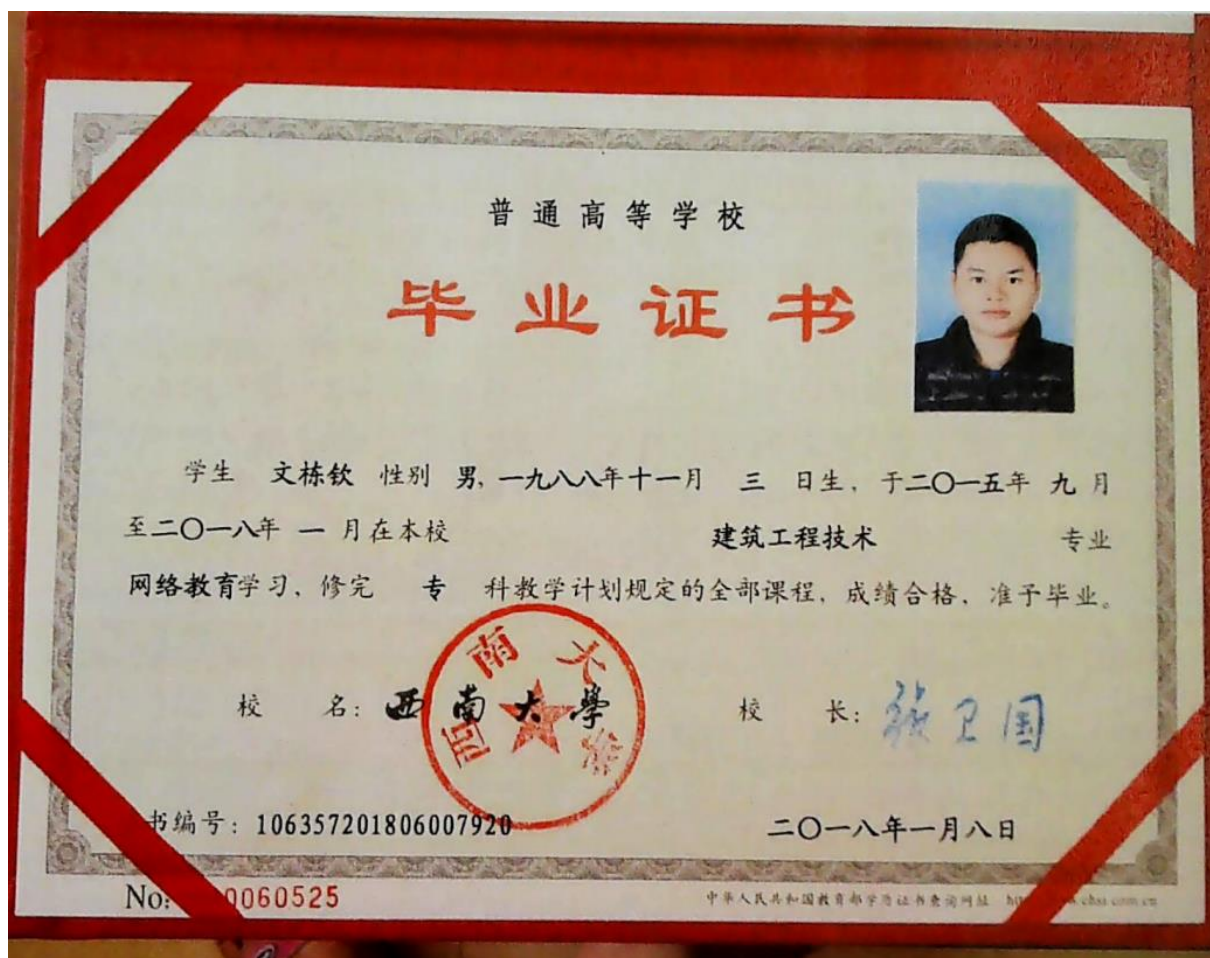 普通高等学校
毕业证书
学生 文栋钦 性别 男, 一九八八年十一月 三 日生, 于二〇一五年 九 月
至二〇一八年 一 月在本校 建筑工程技术 专业
网络教育学习, 修完 专 科教学计划规定的全部课程, 成绩合格, 准予毕业。
西南大学
校 名: 西南大學 校 长: 张卫国
书编号: 106357201806007920 二〇一八年一月八日
No: 0060525 中华人民共和国教育部学历证书查询网址 chsi.com.cn